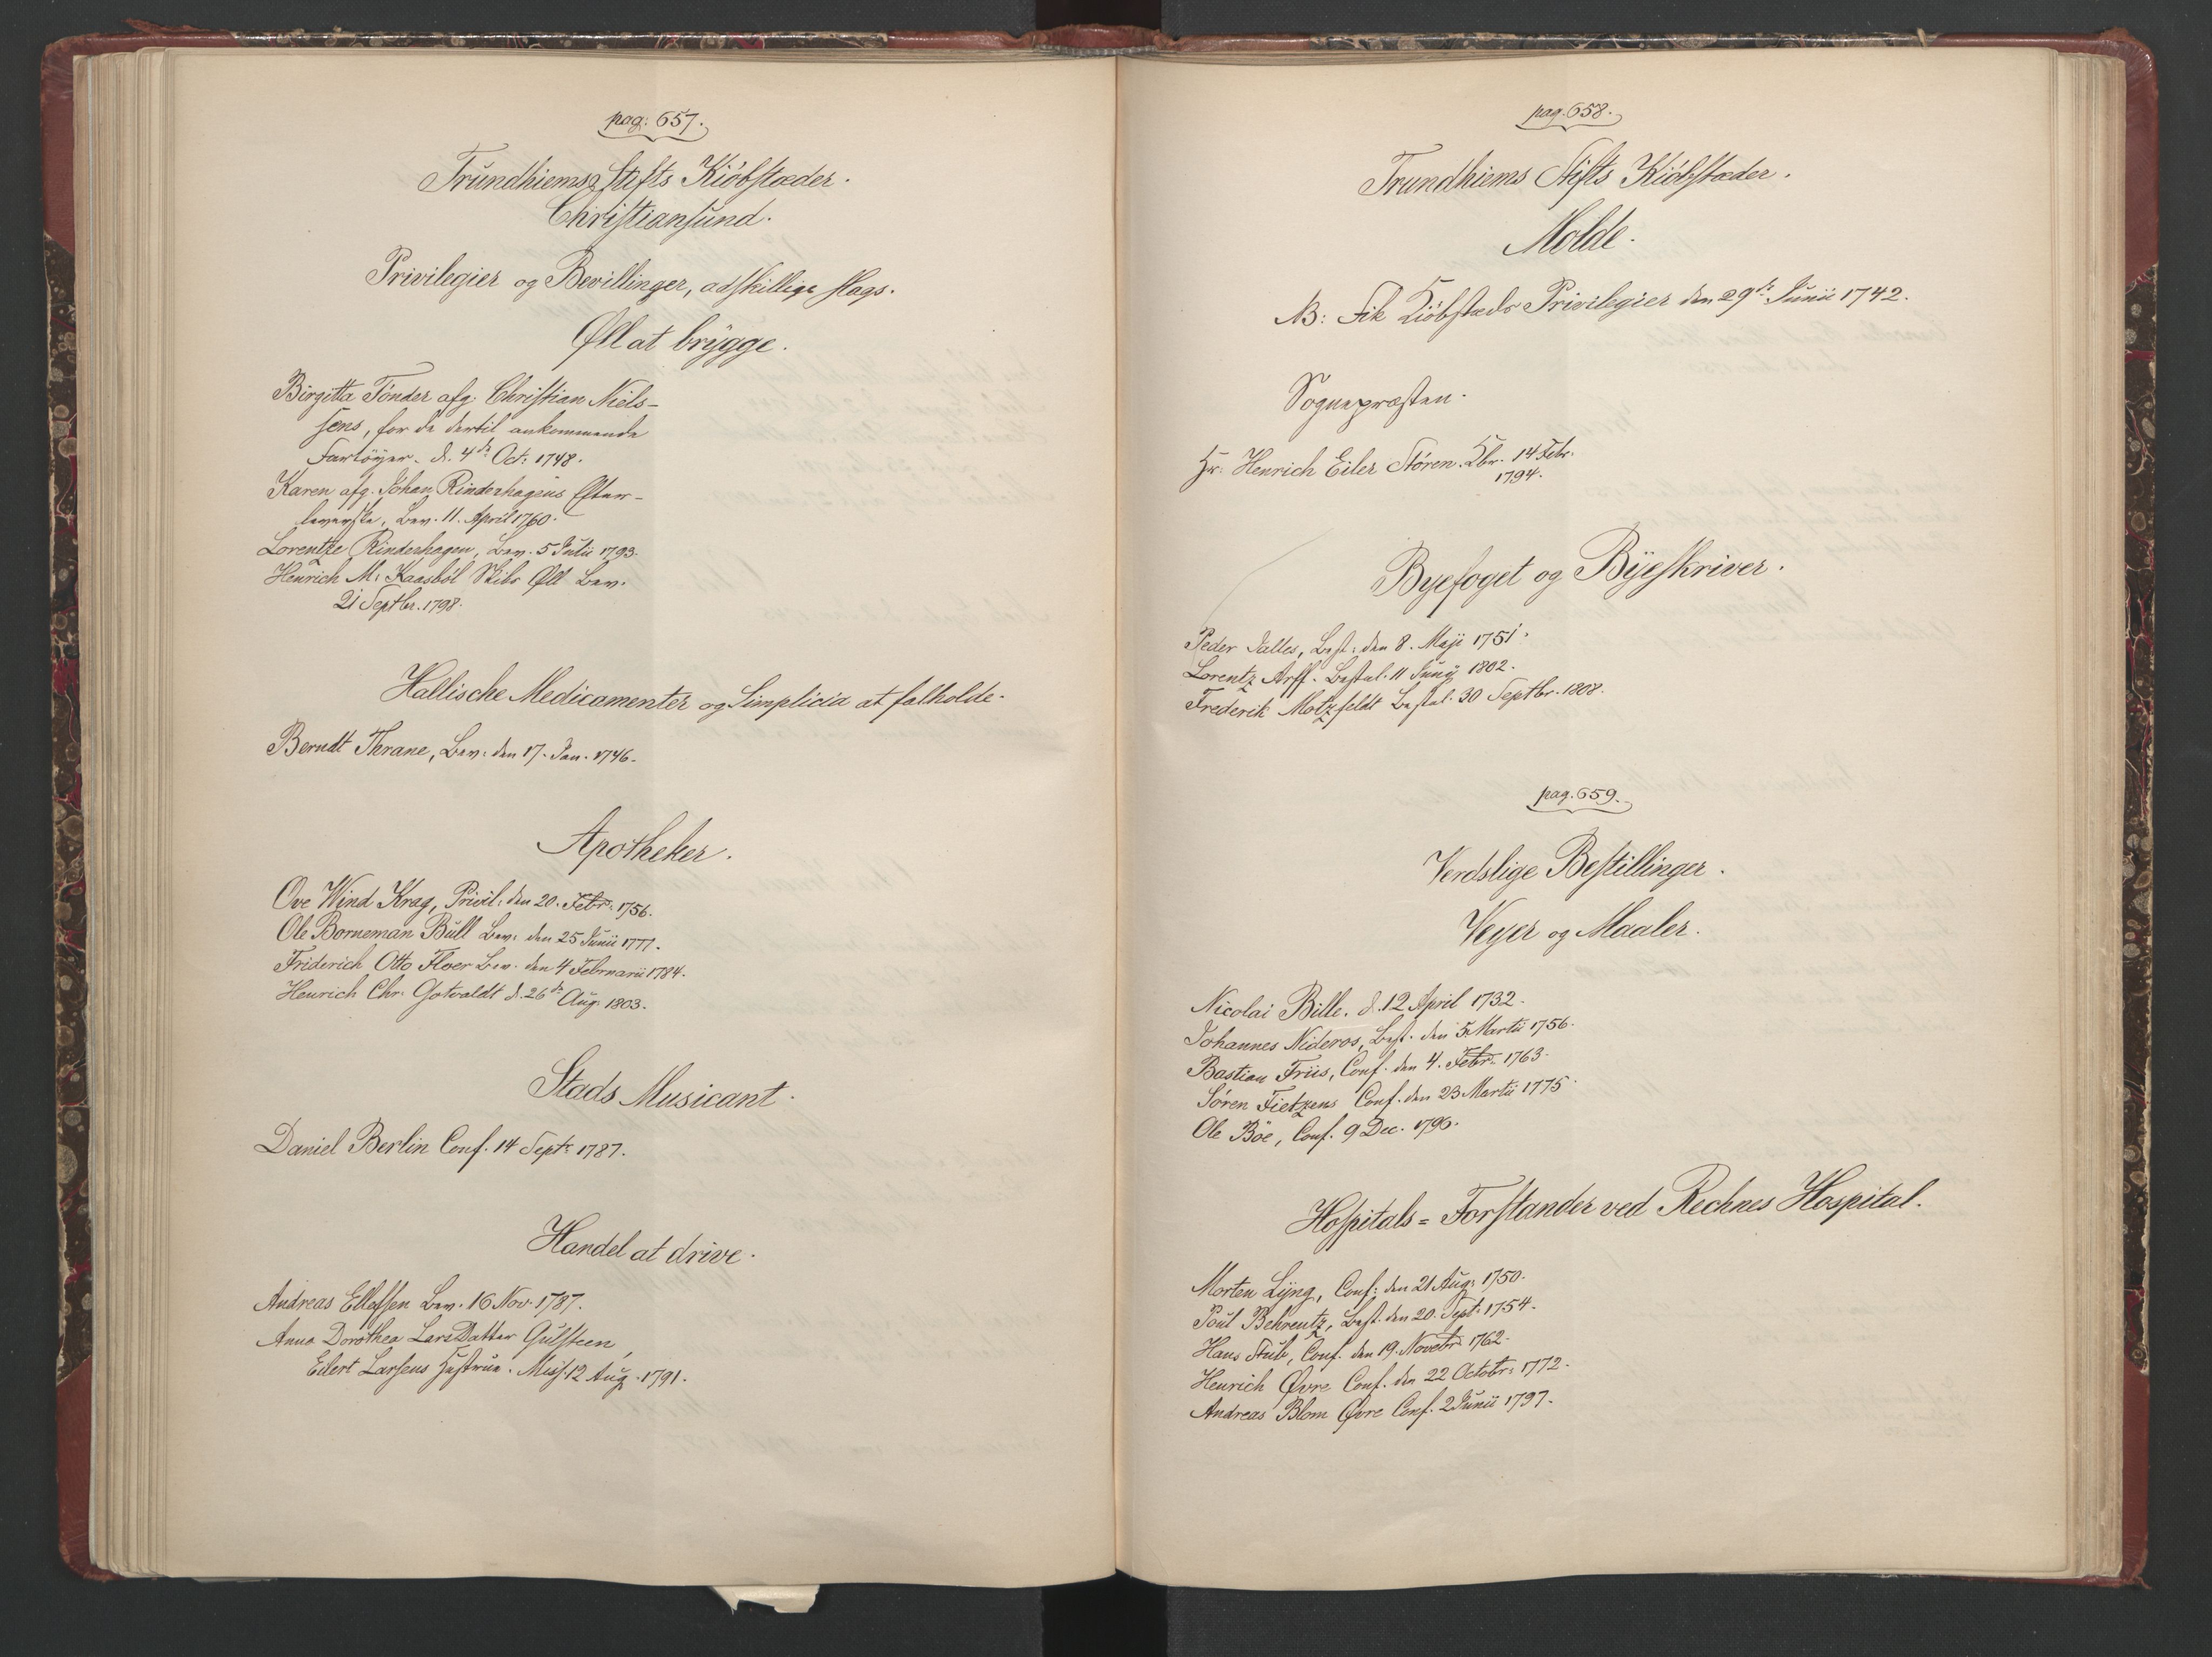 pag: 657.
Trundhiems Stifts Kiöbstæder.
Christiansund.
Privilegier og Bevillinger, adskillige slags.
Øll at brygge.
Birgitta Tønder afg. Christian Niels-
sens, for de dertil ankommende
Fartöyer. d. 4de Oct: 1748.
Karen afg. Johan Rinderhagens Efter-
leverske, Bev. 11. April 1760.
Lorentze Rinderhagen, Bev. 5 Julii 1793.
Henrich M: Kaasböl Skibs Øll Bev.
21 Septbr. 1798.
Hallische Medicamenter og Simplicia at falholde.
Berndt Thrane, Bev: den 17. Jan. 1746.
Apotheker.
Ove Wind Krag, Privil: den 20. Febr: 1756.
Ole Borneman Bull Bev: den 25 Junii 1777.
Friderich Otto Floer Bev. den 4 Februarii 1784.
Henrich Chr. Gotvaldt d. 26de Aug: 1803.
Stads Musicant.
Daniel Berlin Conf. 14 Sept: 1787.
Handel at drive.
Andreas Ellefsen Bev. 16 Nov. 1787.
Anna Dorothea LarsDatter Gulsteen,
Eilert Larsens Hustrue. Miss. 12 Aug. 1791.
pag. 658.
Trundhiems Stifts Kiöbstæder.
Molde.
NB: Fik Kiöbstæds Privilegier den 29de Junii 1742.
Sognepræsten.
Hr. Henrich Eiler Stören. Kbr. 14 Febr.
1794.
Byefoget og Byeskriver.
Peder Dalles, Best: den 8. Maji 1751.
Lorentz Arff. Bestal. 11 Junij 1802.
Frederik Motzfeldt Bestal. 30 Septbr. 1808.
pag. 659.
Verdslige Bestillinger.
Veyer og Maaler.
Nicolai Bille. d. 12 April 1732.
Johannes Nideros, Best. den 5. Martii 1756.
Bastian Friis, Conf. den 4. Febr: 1763.
Sören Fietzens Conf. den 23 Martii 1775.
Ole Böe, Conf. 9 Dec. 1790.
Hospitals=Forstander ved Rechnes Hospital.
Morten Lyng, Conf: den 21 Aug: 1750.
Poul Behrentz, Best. den 20. Sept: 1754.
Hans Stub, Conf. den 19. Novebr: 1762.
Henrich Øvre Conf. den 22 Octobr: 1772.
Andreas Blom Øvre Conf. 2 Junii 1797.